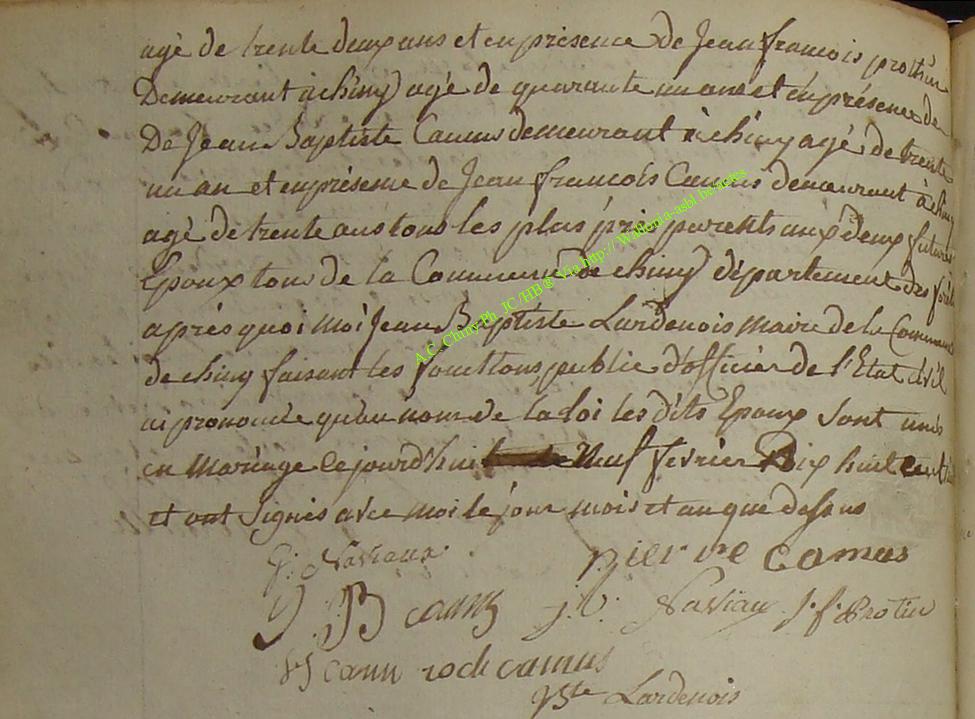 agé de trente deux ans et en presence de Jean francois prottin
Demeurant a chiny agé de quarante un ans et en présence de
De Jean Baptiste Camus demeurant à chiny agé de trente
un an et en présence de Jean francois Camus demeurant à chiny
agé de trente ans tous les plus près parents aux deux futures
Epoux tous de la Commune de chiny département des forêts
après quoi moi Jean Baptiste Lardenois maire de la Commune
de chiny faisant les fonctions public d'officier de l'Etat Civil
ai prononcée qu'au nom de la loi les dits Epoux sont unis
en mariage le jourd'hui neuf fevrier Dix huit cent
et ont Signés avec moi le jour mois et an que dessus
Naviaux pierre camus
J B camus Naviaux J: f: Protin
camus roch camus
Bste Lardenois
A.C. Chiny Ph. JC/HB @ Via http://Wallonia-asbl.be/actes